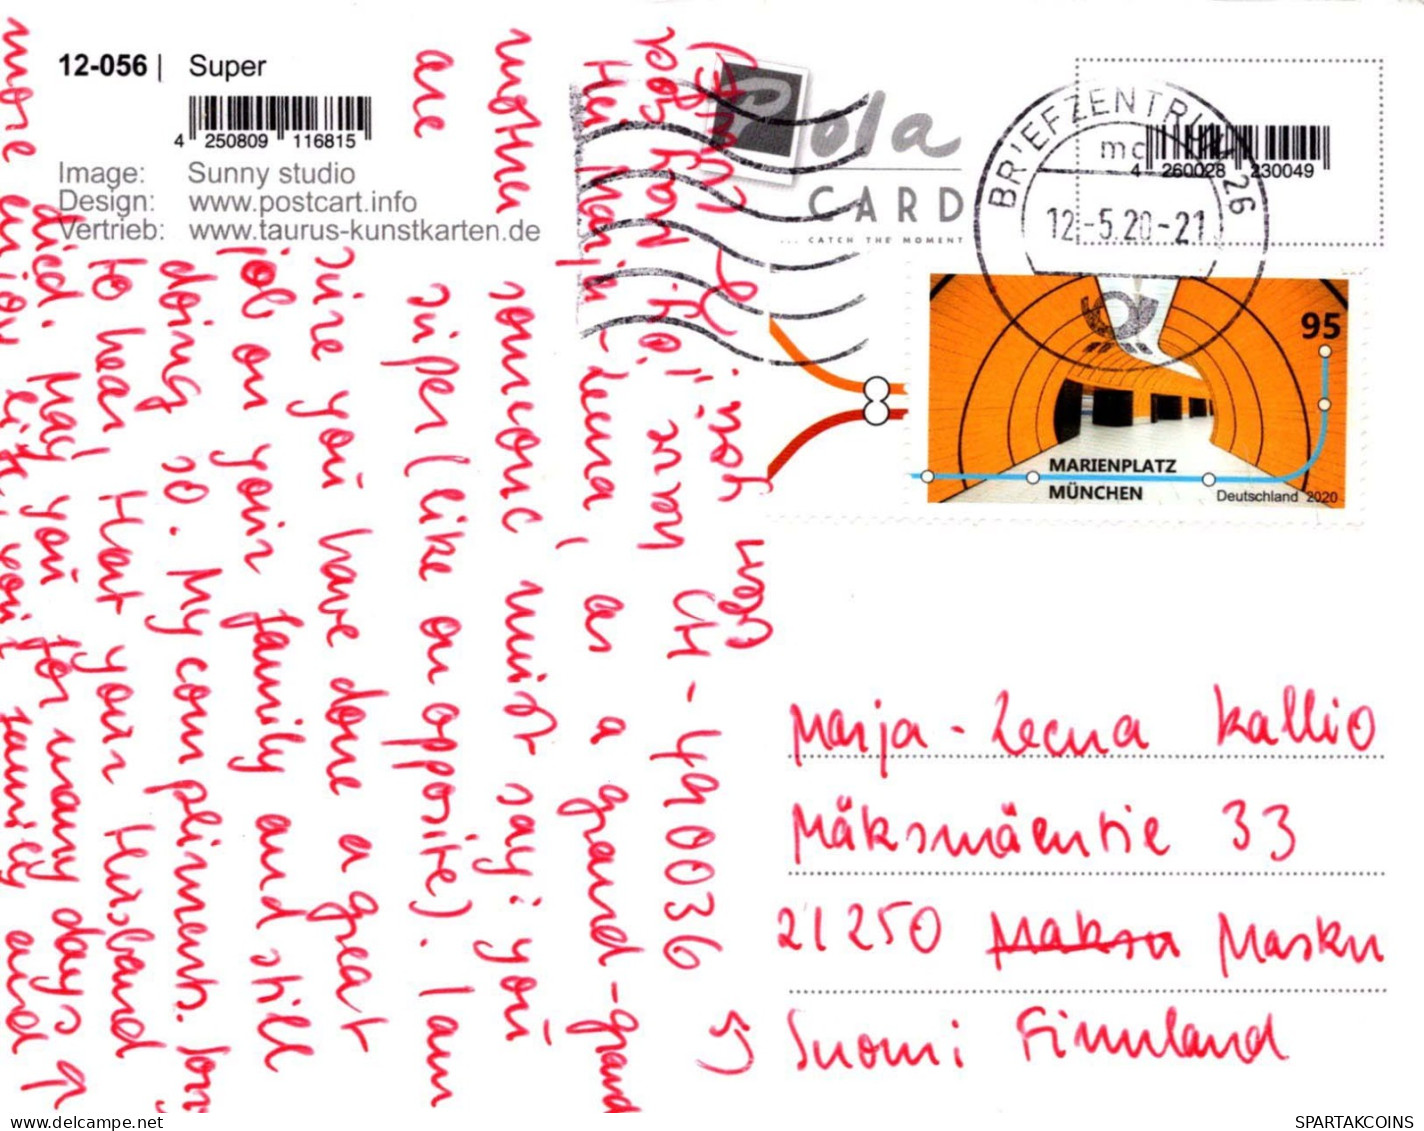 12-056 | Super
4 250809 116815
Image: Sunny studio
Design: www.postcart.info
Vertrieb: www.taurus-kunstkarten.de
Pola
CARD
... CATCH THE MOMENT
BRIEFZENTRUM 26
mc
12.-5.20-21
4 260028 230049
95
MARIENPLATZ
MÜNCHEN
Deutschland 2020
CH-490036
Hei Marja-Leena, as a grand-grand
mother someone must say: you
are super (like on opposite). I am
sure you have done a great
job on your family and still
doing so. My compliments. Sorry
to hear that your Husband
died. May you for many days
more enjoy life, your family and
Marja-Leena Kallio
Mäksmäentie 33
21250 Maksu Masku
Suomi Finnland
SPARTAKCOINS
delcampe.net